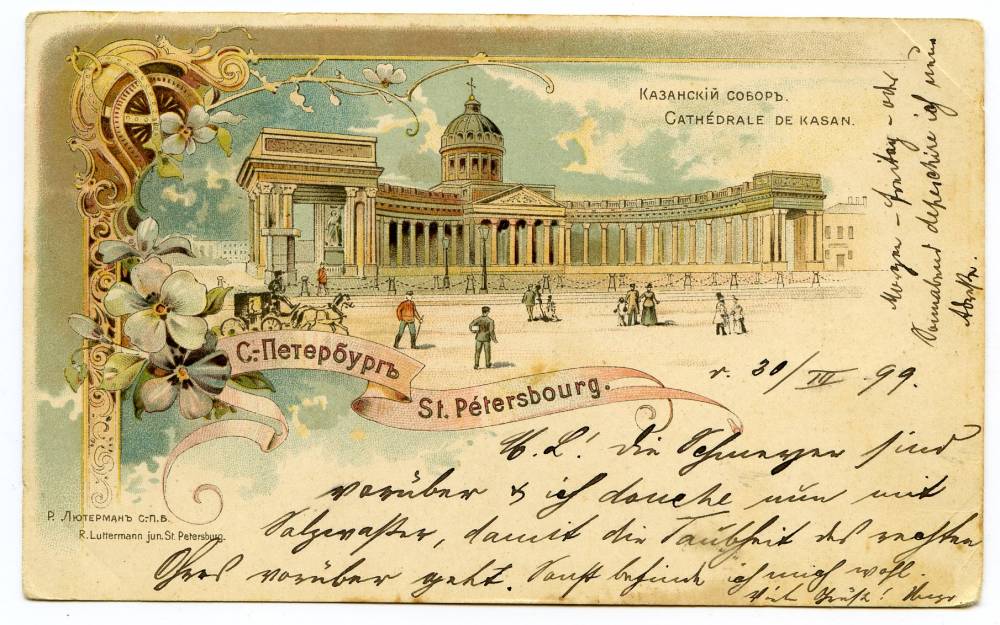 КАЗАНСКІЙ СОБОРЪ.
CATHÉDRALE DE KASAN.
Morgen - Freitag - oder
Sonnabend depeschire ich uns
С.-Петербургъ
St. Pétersbourg.
30/III 99.
M. L.! Die Schmerzen sind
vorüber & ich douche nun mit
Salzwasser, damit die Taubheit des rechten
Ohres vorüber geht. Sonst befinde ich mich wohl.
Viele Grüße! Hugo
Р. ЛЮТЕРМАНЪ С.-П.Б.
R. Luttermann jun. St. Petersburg.